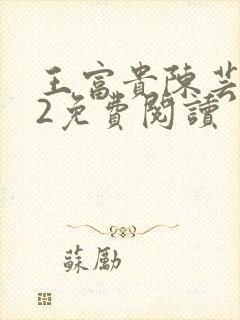 王富貴陳芸
2免費閱讀
蘇勵